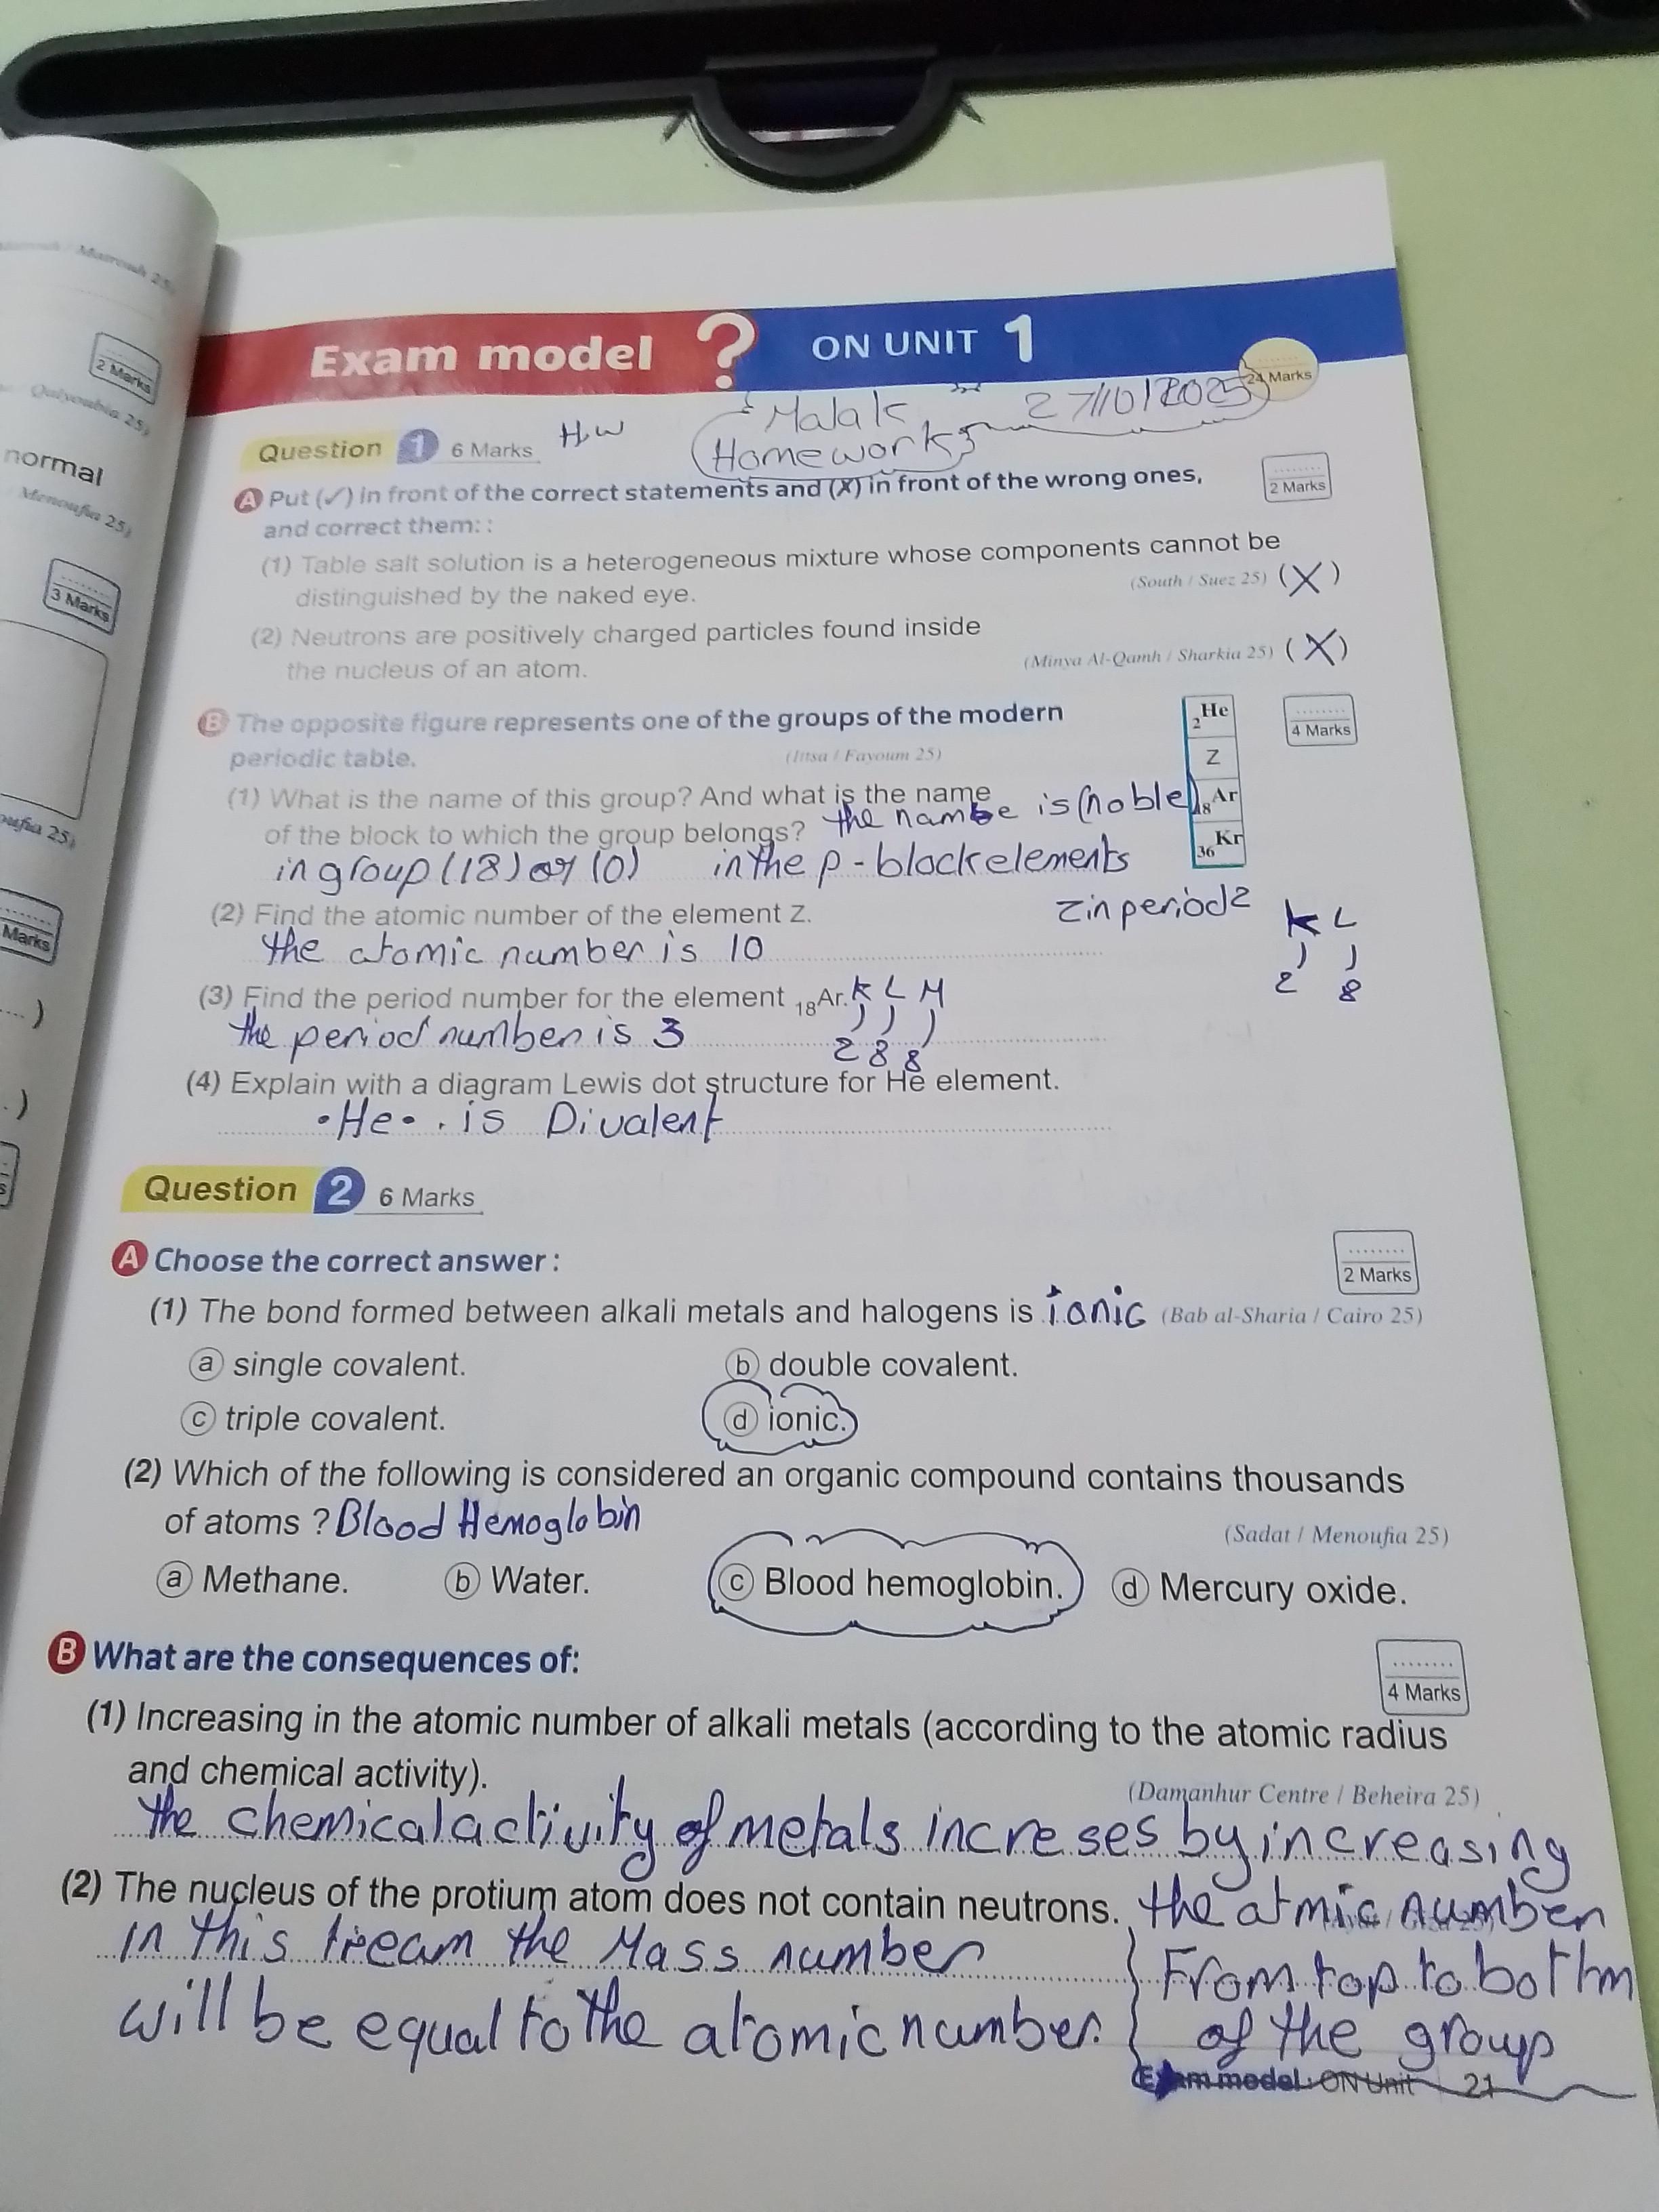 Matrouh 25)
2 Marks
Qalyoubia 25)
normal
Menoufia 25)
3 Marks
25)
Marks
Exam model ? ON UNIT 1
24 Marks
Malak 27/10/2025
Homework
Question 1 6 Marks H.W
A Put (✓) in front of the correct statements and (X) in front of the wrong ones,
and correct them: :
2 Marks
(1) Table salt solution is a heterogeneous mixture whose components cannot be
distinguished by the naked eye. (South / Suez 25) (X)
(2) Neutrons are positively charged particles found inside
the nucleus of an atom. (Minya Al-Qamh / Sharkia 25) (X)
B The opposite figure represents one of the groups of the modern
periodic table. (Itsa / Fayoum 25)
4 Marks
2He
Z
18Ar
36Kr
(1) What is the name of this group? And what is the name
of the block to which the group belongs? the nambe is (noble)
in group (18) or (0) in the p - block elements
(2) Find the atomic number of the element Z. Z in period 2 K L
the atomic number is 10 2 8
(3) Find the period number for the element 18Ar. K L M
the period number is 3 2 8 8
(4) Explain with a diagram Lewis dot structure for He element.
•He• . is Divalent
Question 2 6 Marks
A Choose the correct answer :
2 Marks
(1) The bond formed between alkali metals and halogens is ionic (Bab al-Sharia / Cairo 25)
a single covalent. b double covalent.
c triple covalent. d ionic.
(2) Which of the following is considered an organic compound contains thousands
of atoms ? Blood Hemoglobin (Sadat / Menoufia 25)
a Methane. b Water. c Blood hemoglobin. d Mercury oxide.
B What are the consequences of:
4 Marks
(1) Increasing in the atomic number of alkali metals (according to the atomic radius
and chemical activity). (Damanhur Centre / Beheira 25)
the chemical activity of metals increses by increasing
the atmic number
From top to bottm
of the group
(2) The nucleus of the protium atom does not contain neutrons.
in this the Mass number
will be equal to the atomic number.
Exam model : ON Unit 21